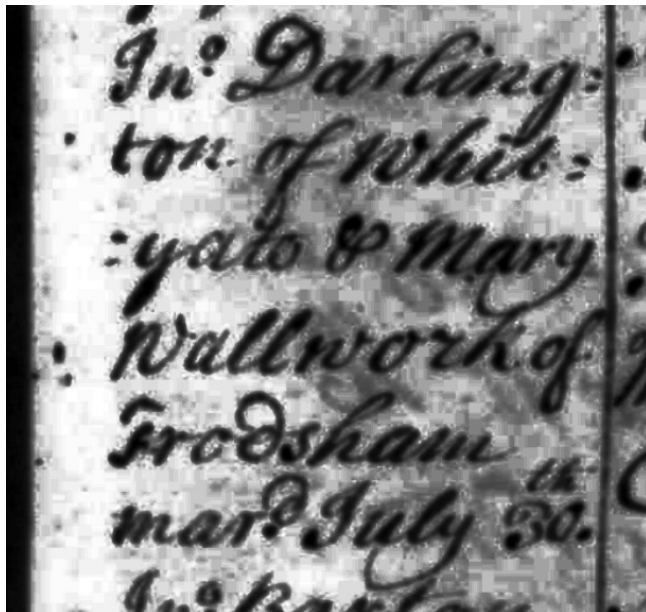 Jnº Darling:
ton of Whit:
:yate & Mary
Wallwork of
Frodsham
marᵈ July 30.ᵗʰ
Jnº